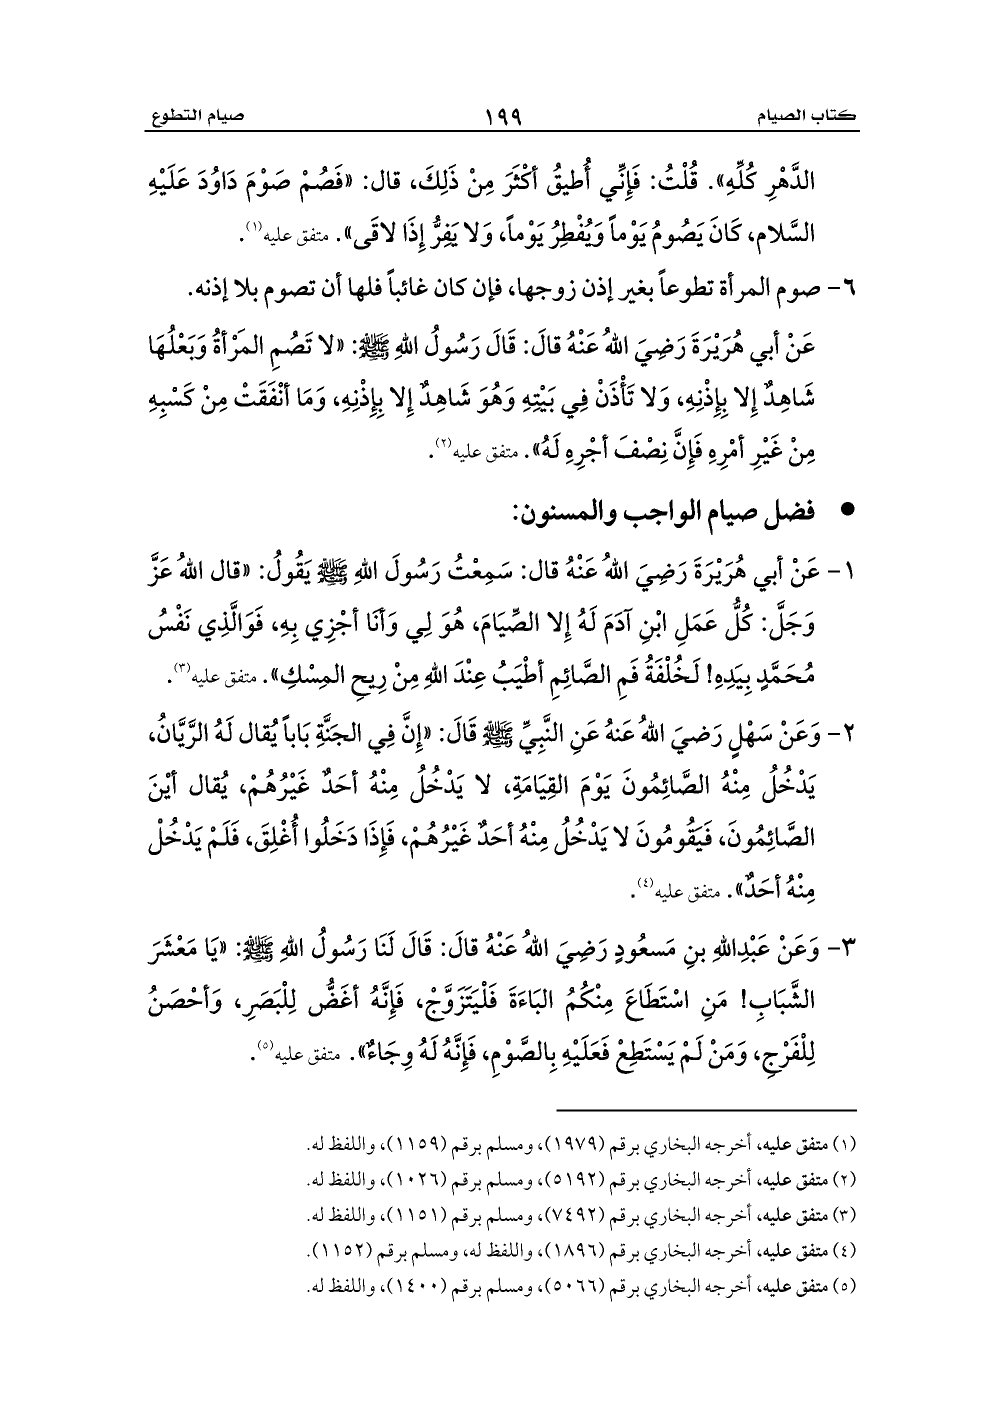 كتاب الصيام ١٩٩ صيام التطوع
الدَّهْرِ كُلِّهِ». قُلْتُ: فَإِنِّي أُطيقُ أكْثَرَ مِنْ ذَلِكَ، قال: «فَصُمْ صَوْمَ دَاوُدَ عَلَيْهِ
السَّلام، كَانَ يَصُومُ يَوْماً وَيُفْطِرُ يَوْماً، وَلا يَفِرُّ إِذَا لاقَى». متفق عليه(١).
٦- صوم المرأة تطوعاً بغير إذن زوجها، فإن كان غائباً فلها أن تصوم بلا إذنه.
عَنْ أبي هُرَيْرَةَ رَضِيَ اللهُ عَنْهُ قالَ: قَالَ رَسُولُ اللهِ ﷺ: «لا تَصُمِ المَرْأةُ وَبَعْلُهَا
شَاهِدٌ إلا بِإِذْنِهِ، وَلا تَأْذَنْ فِي بَيْتِهِ وَهُوَ شَاهِدٌ إلا بِإِذْنِهِ، وَمَا أنْفَقَتْ مِنْ كَسْبِهِ
مِنْ غَيْرِ أمْرِهِ فَإِنَّ نِصْفَ أجْرِهِ لَهُ». متفق عليه(٢).
● فضل صيام الواجب والمسنون:
١- عَنْ أبي هُرَيْرَةَ رَضِيَ اللهُ عَنْهُ قال: سَمِعْتُ رَسُولَ اللهِ ﷺ يَقُولُ: «قال اللهُ عَزَّ
وَجَلَّ: كُلُّ عَمَلِ ابْنِ آدَمَ لَهُ إلا الصِّيَامَ، هُوَ لِي وَأنَا أجْزِي بِهِ، فَوَالَّذِي نَفْسُ
مُحَمَّدٍ بِيَدِهِ! لَخُلْفَةُ فَمِ الصَّائِمِ أطْيَبُ عِنْدَ اللهِ مِنْ رِيحِ المِسْكِ». متفق عليه(٣).
٢- وَعَنْ سَهْلٍ رَضيَ اللهُ عَنهُ عَنِ النَّبِيِّ ﷺ قَالَ: «إنَّ فِي الجَنَّةِ بَاباً يُقال لَهُ الرَّيَّانُ،
يَدْخُلُ مِنْهُ الصَّائِمُونَ يَوْمَ القِيَامَةِ، لا يَدْخُلُ مِنْهُ أحَدٌ غَيْرُهُمْ، يُقال أيْنَ
الصَّائِمُونَ، فَيَقُومُونَ لا يَدْخُلُ مِنْهُ أحَدٌ غَيْرُهُمْ، فَإِذَا دَخَلُوا أُغْلِقَ، فَلَمْ يَدْخُلْ
مِنْهُ أحَدٌ». متفق عليه(٤).
٣- وَعَنْ عَبْدِاللهِ بنِ مَسعُودٍ رَضِيَ اللهُ عَنْهُ قالَ: قَالَ لَنَا رَسُولُ اللهِ ﷺ: «يَا مَعْشَرَ
الشَّبَابِ! مَنِ اسْتَطَاعَ مِنْكُمُ البَاءَةَ فَلْيَتَزَوَّجْ، فَإِنَّهُ أغَضُّ لِلْبَصَرِ، وَأحْصَنُ
لِلْفَرْجِ، وَمَنْ لَمْ يَسْتَطِعْ فَعَلَيْهِ بِالصَّوْمِ، فَإِنَّهُ لَهُ وِجَاءٌ». متفق عليه(٥).
(١) متفق عليه، أخرجه البخاري برقم (١٩٧٩)، ومسلم برقم (١١٥٩)، واللفظ له.
(٢) متفق عليه، أخرجه البخاري برقم (٥١٩٢)، ومسلم برقم (١٠٢٦)، واللفظ له.
(٣) متفق عليه، أخرجه البخاري برقم (٧٤٩٢)، ومسلم برقم (١١٥١)، واللفظ له.
(٤) متفق عليه، أخرجه البخاري برقم (١٨٩٦)، واللفظ له، ومسلم برقم (١١٥٢).
(٥) متفق عليه، أخرجه البخاري برقم (٥٠٦٦)، ومسلم برقم (١٤٠٠)، واللفظ له.